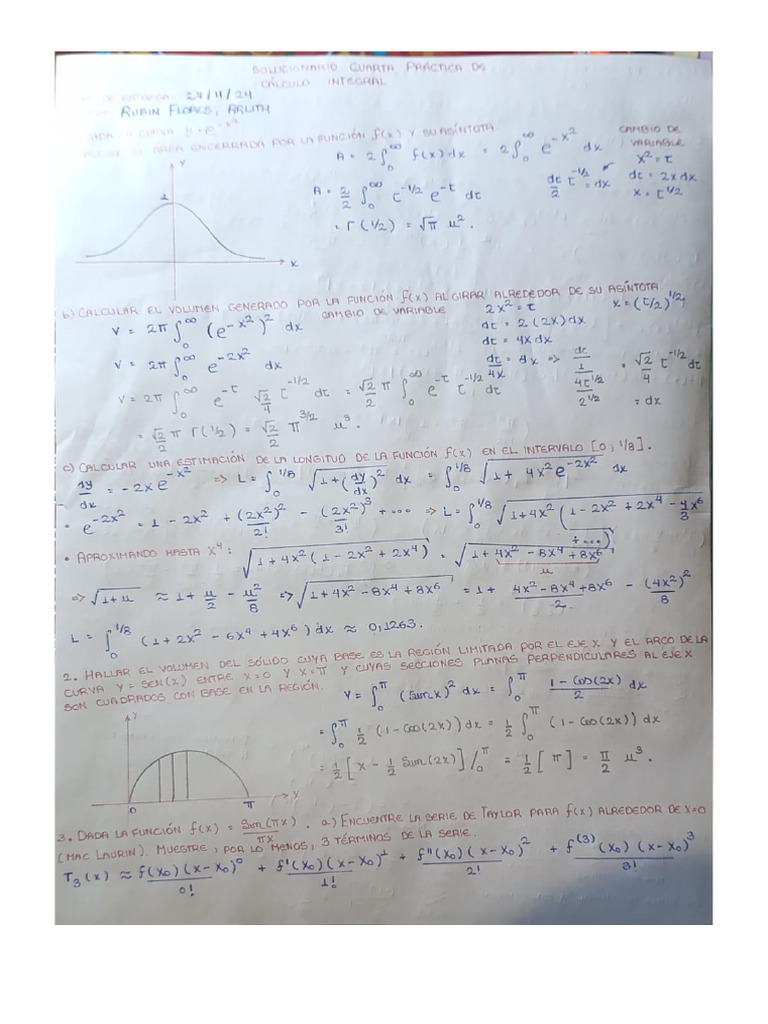 SOLUCIONARIO CUARTA PRÁCTICA DE
CÁLCULO INTEGRAL
DE ENTREGA: 27/11/24
RUBIN FLORES, ARLITH
CURVA y = e^{-x²}
EL ÁREA ENCERRADA POR LA FUNCIÓN f(x) Y SU ASÍNTOTA
A = 2∫₀^∞ f(x)dx = 2∫₀^∞ e^{-x²} dx
CAMBIO DE VARIABLE
x² = t
dt = 2x dx
x = t^{1/2}
dt/2 t^{-1/2} = dx
A = 2/2 ∫₀^∞ t^{-1/2} e^{-t} dt
= Γ(1/2) = √π u².
y
x
b) CALCULAR EL VOLUMEN GENERADO POR LA FUNCIÓN f(x) AL GIRAR ALREDEDOR DE SU ASÍNTOTA
V = 2π∫₀^∞ (e^{-x²})² dx
CAMBIO DE VARIABLE
2x² = t
x = (t/2)^{1/2}
dt = 2(2x)dx
dt = 4x dx
V = 2π∫₀^∞ e^{-2x²} dx
dt/4x = dx => dt/1 / 4t^{1/2}/2^{1/2} = √2/4 t^{-1/2} dt = dx
V = 2π∫₀^∞ e^{-t} √2/4 t^{-1/2} dt = √2/2 π∫₀^∞ e^{-t} t^{-1/2} dt
= √2/2 π Γ(1/2) = √2/2 π^{3/2} u³.
c) CALCULAR UNA ESTIMACIÓN DE LA LONGITUD DE LA FUNCIÓN f(x) EN EL INTERVALO [0, 1/8].
dy/dx = -2xe^{-x²} => L = ∫₀^{1/8} √(1+(dy/dx)²) dx = ∫₀^{1/8} √(1+4x²e^{-2x²}) dx
• e^{-2x²} = 1 - 2x² + (2x²)²/2! - (2x²)³/3! + ... => L = ∫₀^{1/8} √(1+4x²(1-2x²+2x⁴-4/3 x⁶+...))
• APROXIMANDO HASTA x⁴: √(1+4x²(1-2x²+2x⁴)) = √(1+4x²-8x⁴+8x⁶)
u
=> √(1+u) ≈ 1+u/2 - u²/8 => √(1+4x²-8x⁴+8x⁶) = 1+ (4x²-8x⁴+8x⁶)/2 - (4x²)²/8
L = ∫₀^{1/8} (1+2x²-6x⁴+4x⁶)dx ≈ 0,1263.
2. HALLAR EL VOLUMEN DEL SÓLIDO CUYA BASE ES LA REGIÓN LIMITADA POR EL EJE X Y EL ARCO DE LA
CURVA y = SEN(x) ENTRE X=0 Y X=π Y CUYAS SECCIONES PLANAS PERPENDICULARES AL EJE X
SON CUADRADOS CON BASE EN LA REGIÓN.
V = ∫₀^π (Sen x)² dx = ∫₀^π (1-Cos(2x))/2 dx
= ∫₀^π 1/2 (1-Cos(2x))dx = 1/2 ∫₀^π (1-Cos(2x))dx
= 1/2 [x - 1/2 Sen(2x)]/₀^π = 1/2 [π] = π/2 u³.
y
x
0
π
3. DADA LA FUNCIÓN f(x) = Sen(πx)/πx. a) ENCUENTRE LA SERIE DE TAYLOR PARA f(x) ALREDEDOR DE X=0
(MAC LAURIN). MUESTRE, POR LO MENOS, 3 TÉRMINOS DE LA SERIE.
T₃(x) ≈ f(x₀)(x-x₀)⁰/0! + f'(x₀)(x-x₀)¹/1! + f''(x₀)(x-x₀)²/2! + f⁽³⁾(x₀)(x-x₀)³/3!